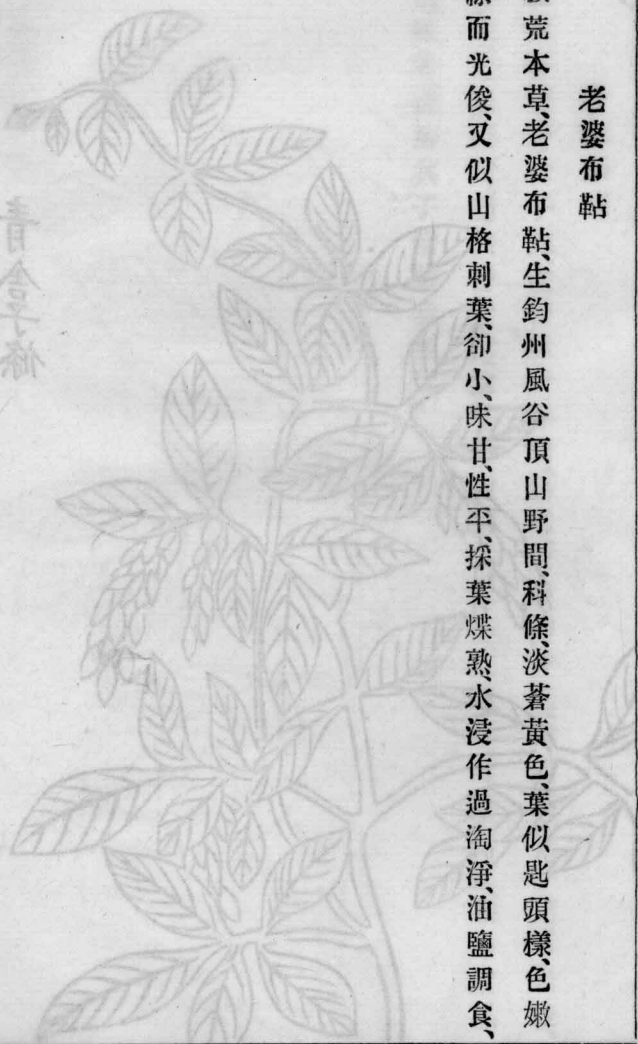 老婆布䩞
荒本草、老婆布䩞、生鈞州風谷頂山野間、科條、淡蒼黃色、葉似匙頭樣、色嫩
而光俊、又似山格刺葉、卻小、味甘、性平、採葉煠熟、水浸作過淘淨、油鹽調食、
青舍子條